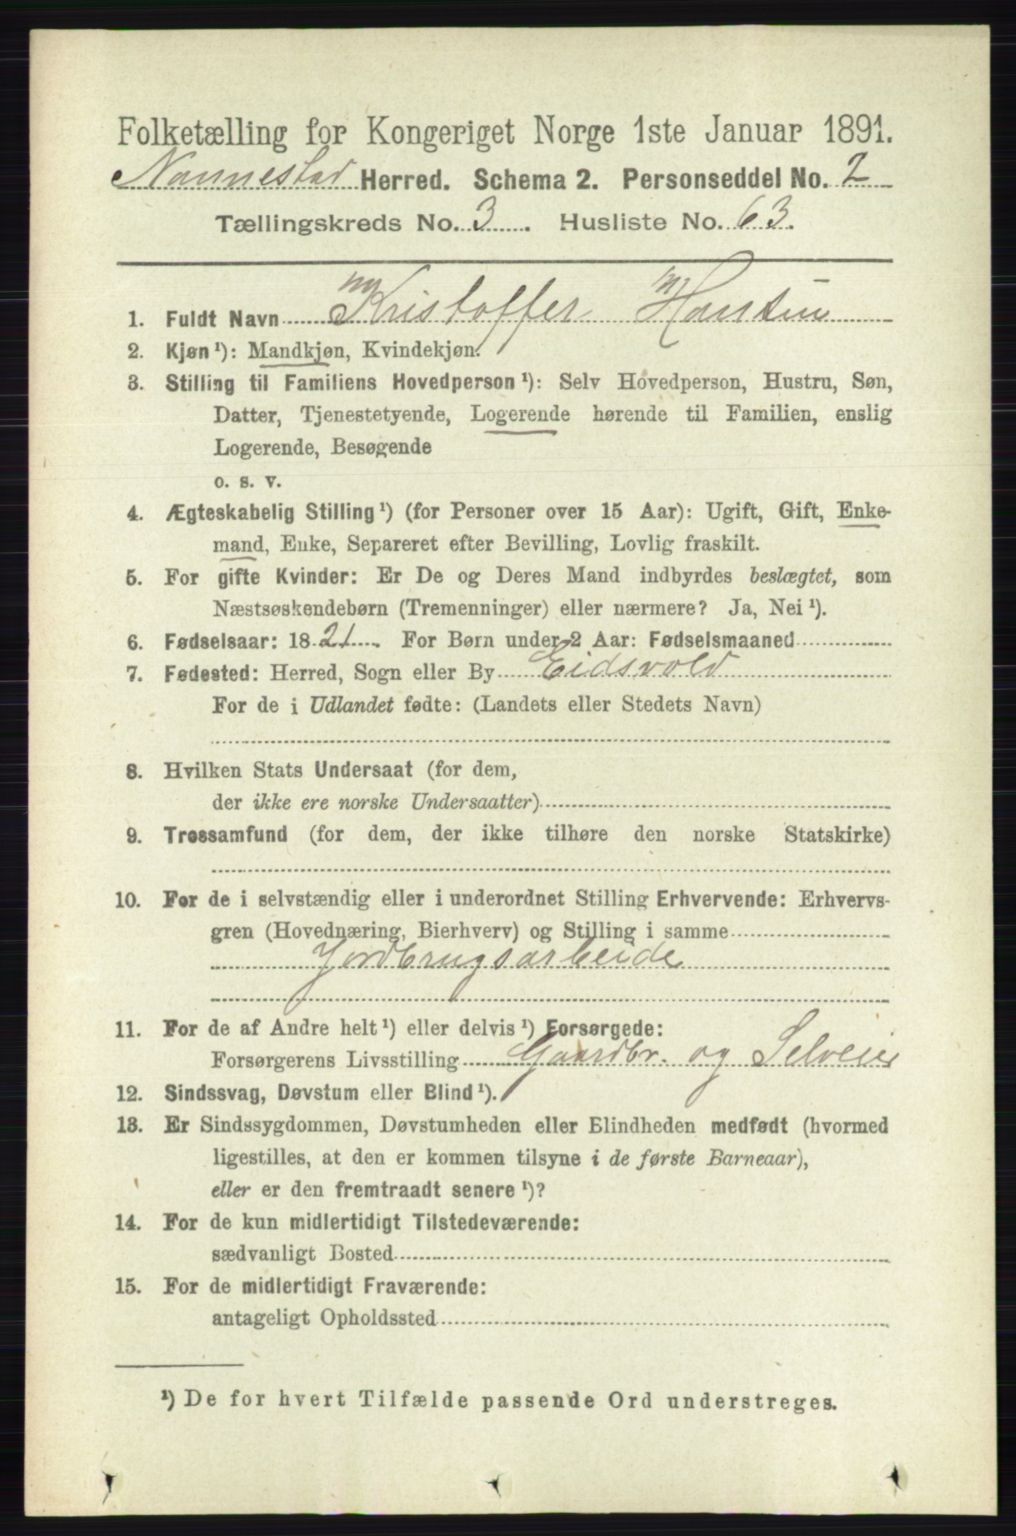 Folketælling for Kongeriget Norge 1ste Januar 1891.
Nannestad Herred. Schema 2. Personseddel No. 2
Tællingskreds No. 3. Husliste No. 63.
1. Fuldt Navn Kristoffer Hansen
2. Kjøn ¹): Mandkjøn, Kvindekjøn.
3. Stilling til Familiens Hovedperson ¹): Selv Hovedperson, Hustru, Søn,
Datter, Tjenestetyende, Logerende hørende til Familien, enslig
Logerende, Besøgende
o. s. v.
4. Ægteskabelig Stilling ¹) (for Personer over 15 Aar): Ugift, Gift, Enke-
mand, Enke, Separeret efter Bevilling, Lovlig fraskilt.
5. For gifte Kvinder: Er De og Deres Mand indbyrdes beslægtet, som
Næstsøskendebørn (Tremenninger) eller nærmere? Ja, Nei ¹).
6. Fødselsaar: 1821. For Børn under 2 Aar: Fødselsmaaned
7. Fødested: Herred, Sogn eller By Eidsvold
For de i Udlandet fødte: (Landets eller Stedets Navn)
8. Hvilken Stats Undersaat (for dem,
der ikke ere norske Undersaatter)
9. Trossamfund (for dem, der ikke tilhøre den norske Statskirke)
10. For de i selvstændig eller i underordnet Stilling Erhvervende: Erhvervs-
gren (Hovednæring, Bierhverv) og Stilling i samme
Jordbrugsarbeide
11. For de af Andre helt ¹) eller delvis ¹) Forsørgede:
Forsørgerens Livsstilling Gaardbr. og Selveier
12. Sindssvag, Døvstum eller Blind ¹).
13. Er Sindssygdommen, Døvstumheden eller Blindheden medfødt (hvormed
ligestilles, at den er kommen tilsyne i de første Barneaar),
eller er den fremtraadt senere ¹)?
14. For de kun midlertidigt Tilstedeværende:
sædvanligt Bosted
15. For de midlertidigt Fraværende:
antageligt Opholdssted
¹) De for hvert Tilfælde passende Ord understreges.